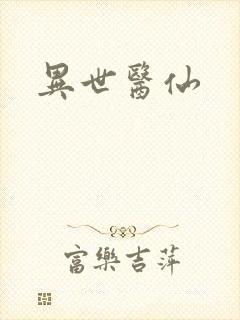 異世醫仙
富樂吉萍